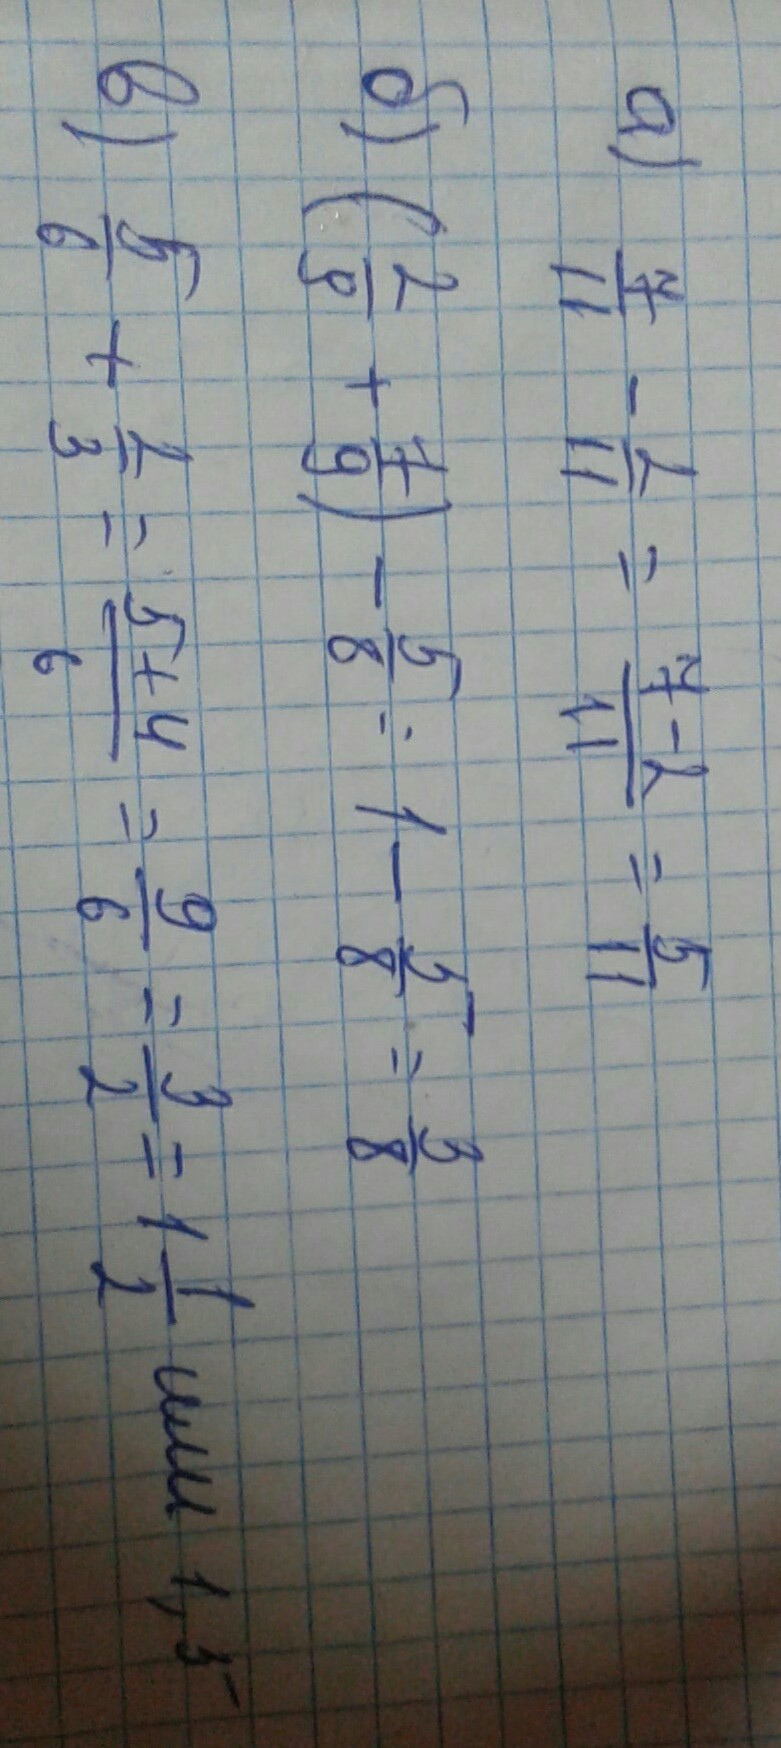 а) 7/11 - 2/11 = 7-2/11 = 5/11
б) (2/9 + 7/9) - 5/8 = 1 - 5/8 = 3/8
в) 5/6 + 2/3 = 5+4/6 = 9/6 = 3/2 = 1 1/2 или 1,5